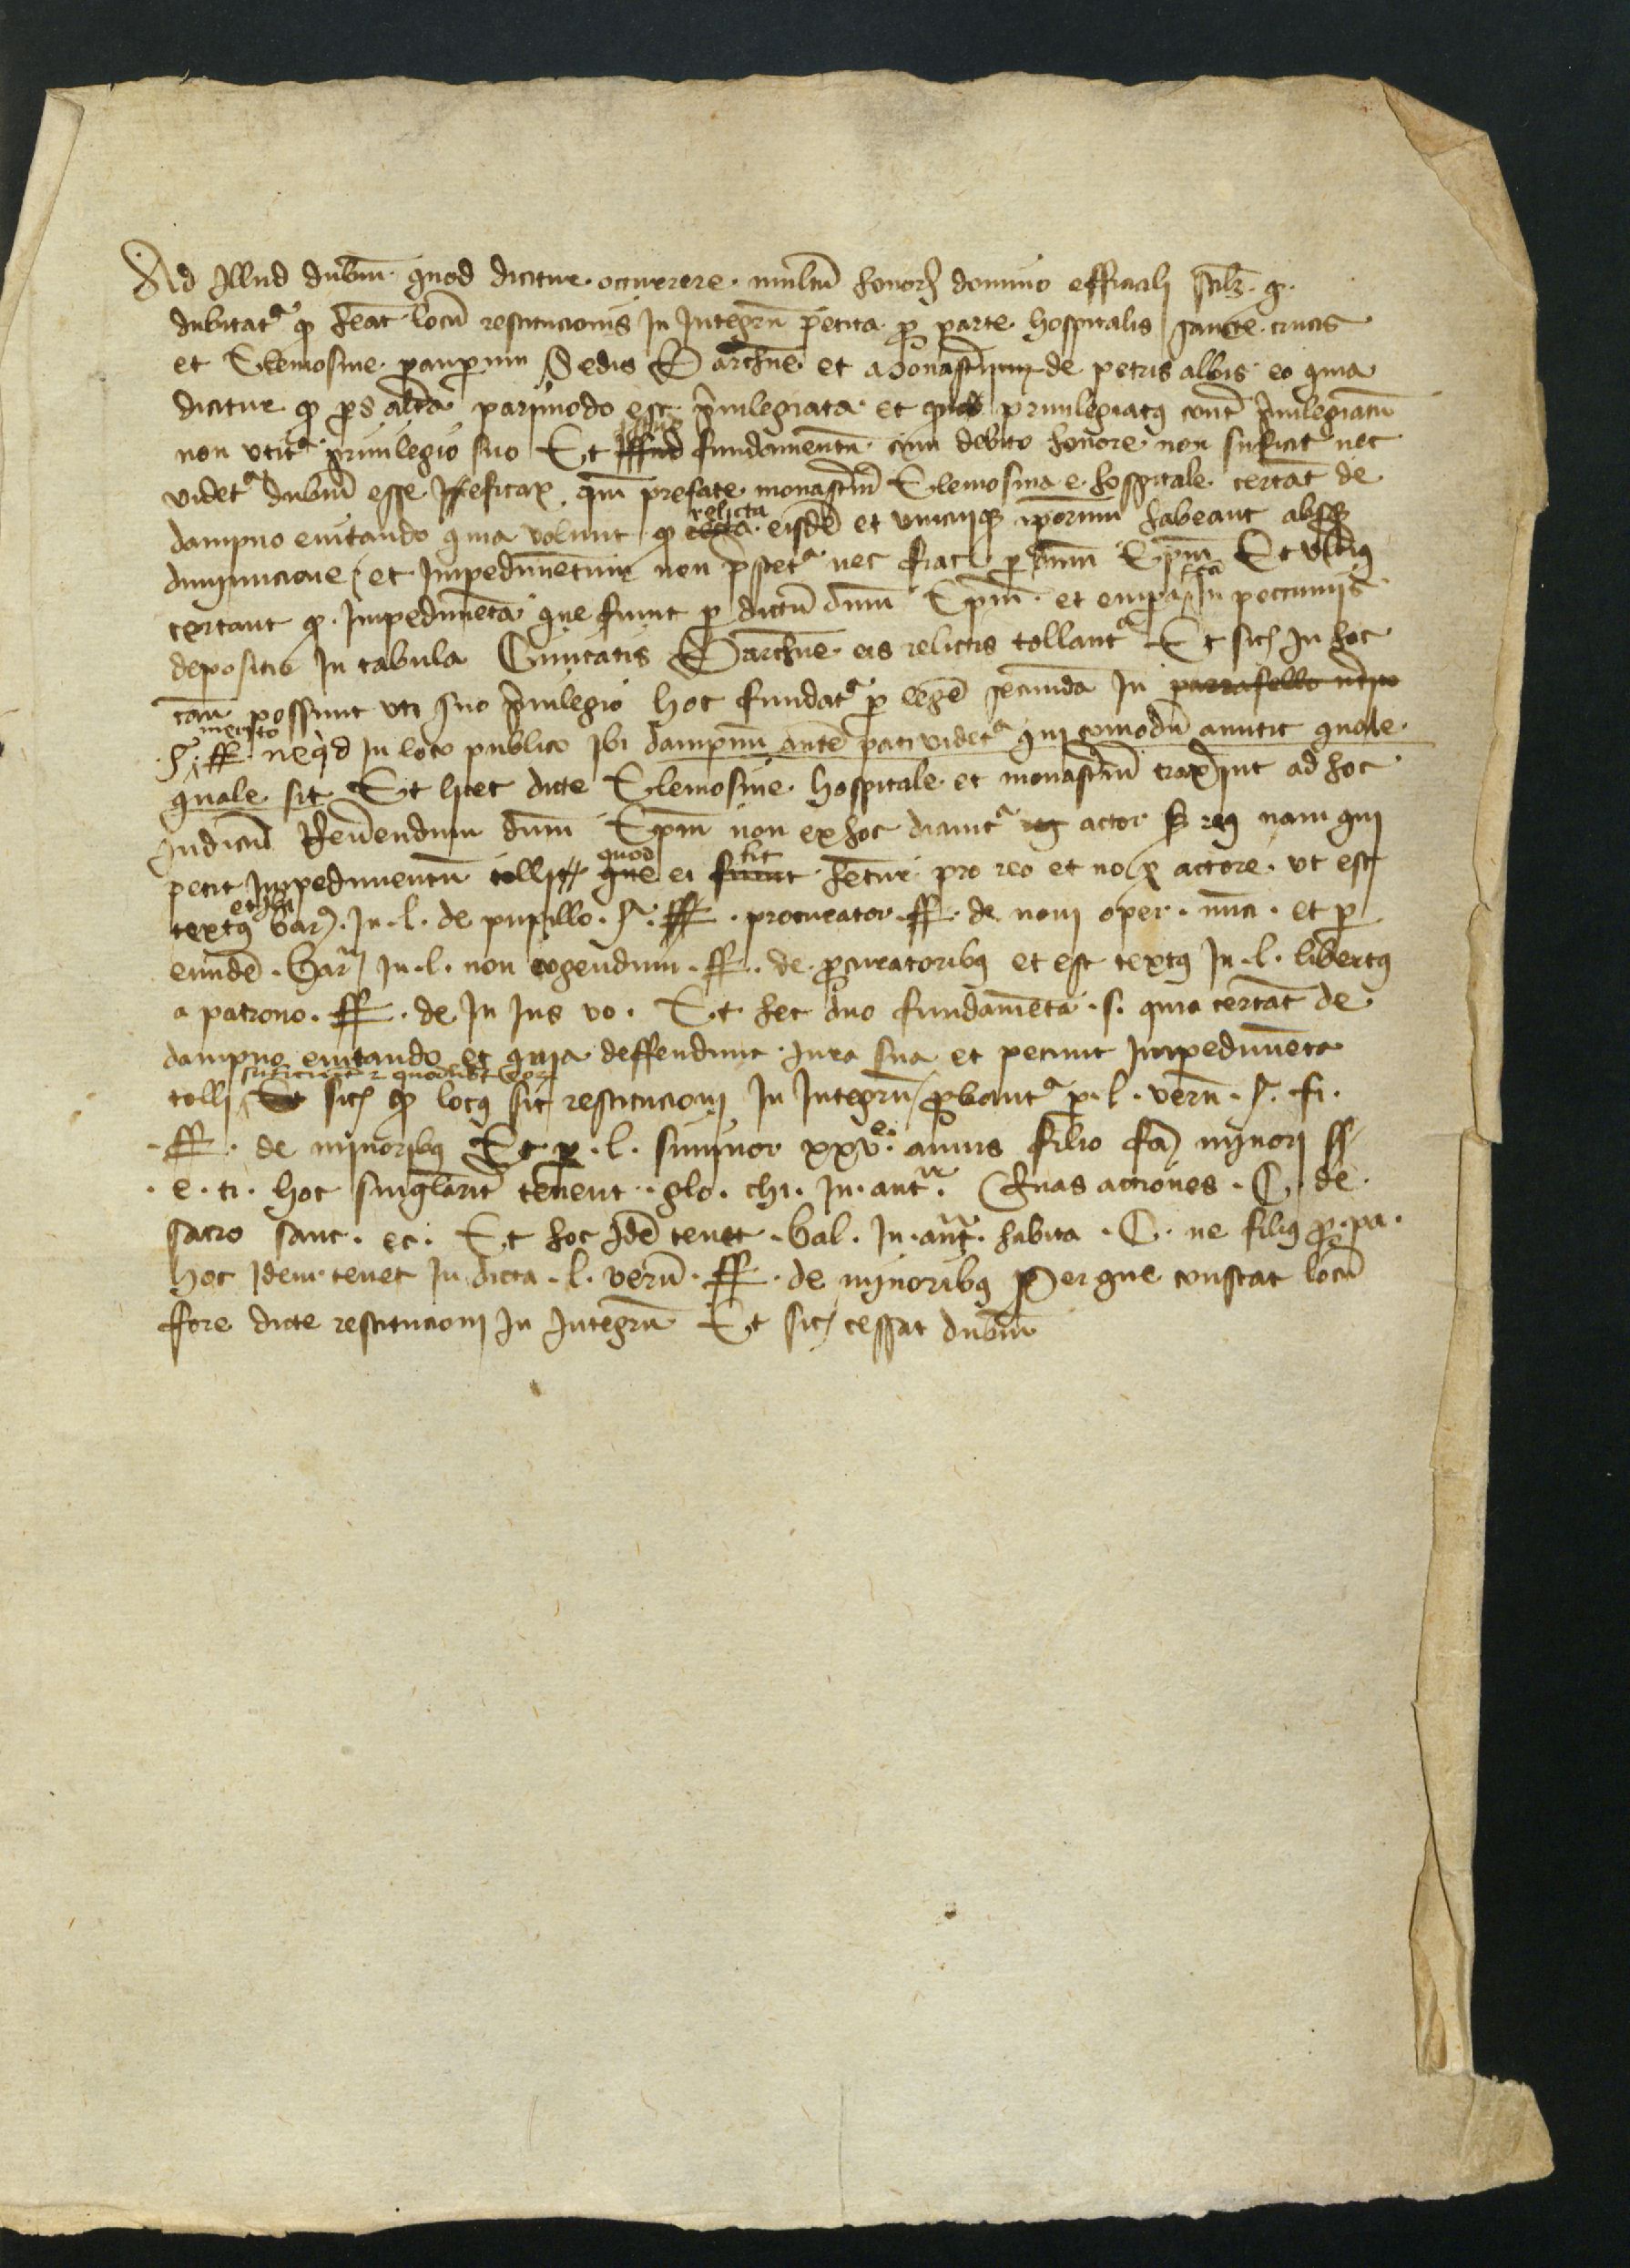 Ad Illud dubiū quod dicitur occurrere multū honor. domino officiali scilz. q.
dubitatr q heat locū restitucionis In Integrū petita p parte hospitalis sancte crucis
et Elemosine pauperum Sedis Barchne et Monasterium de petris albis eo quia
dicitur q ps altera parimodo est priuilegiata et quod priuilegiatus contra priuilegiatū
non utitr priuilegio suo Et fundamentū cum debito honore non suficit nec
videtr dubiū esse eficax qm prefate monasteriū Elemosina e hospitale certāt de
dampno euitando quia volunt q relicta eisdē et unicuiq ipsorum habeant absq
diminucione et Impedimētum non prestetr nec fiat p dnm Epm Et ulterius
certant q Impedimēta que fiunt p dictū dnm Epm et empara fca In peccuniis
depositis In tabula Ciuitatis Barchne eis relictis tollantr Et sic In hoc
casu possunt uti suo priuilegio hoc fundatr p legē secunda In
merito
§. ff. ne qd In loco publico Ibi dampnum autē pati videtr qui comodū amittit quale
quale sit Et licet dicte Elemosine hospitale et monasteriū traxerint ad hoc
Iudiciū Reuerendum dnm Epm non ex hoc dicuntr actor s3 reus nam qui
petit Impedimentū tolli quod ei fit hetur pro reo et no p actore ut est
textus et ibi bar. In .l. de pupillo .§. procurator .ff. de noui oper. nūcia. et p
eundē .bar. In .l. non cogendum .ff. de procuratoribus et est textus In .l. libertus
a patrono .ff. de In Ius vo. Et hec duo fundamēta .s. quia certāt de
dampno euitando et quia deffendunt Iura sua et petunt Impedimēta
tolli suficiunt et quodlibet eorū sic q locus sit restitucioni In Integrū probantr p .l. verū .§. fi.
.ff. de minoribus Et p .l. si minor xxv. annis filio fa minori ff
.e. ti. hoc singularitr tenent .glo. chi. In aut. Quas actiones .C. de
sacro sanc. ec. Et hoc Idē tenet .bal. In aut. habita .C. ne filius pro pa.
hoc Idem tenet In dicta .l. verū .ff. de minoribus Per que constat locū
ffore dicte restitucioni In Integrū Et sic cessat dubiū